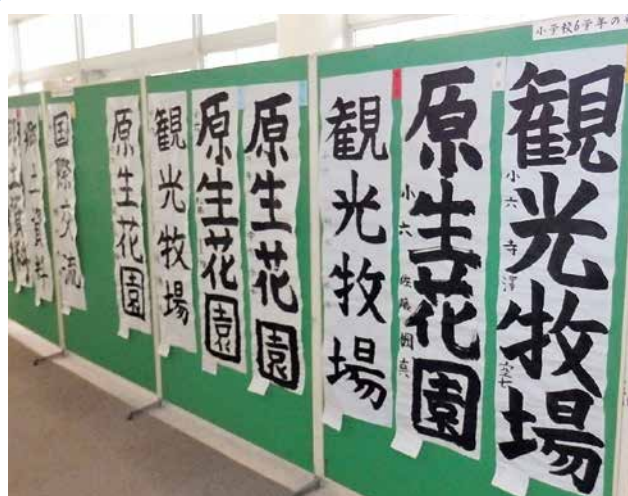 小学校6学年の
観光牧場
小六 寺澤
原生花園
小六 佐藤
観光牧場
原生花園
原生花園
観光牧場
原生花園
国際交流
郷土資料
郷土資料